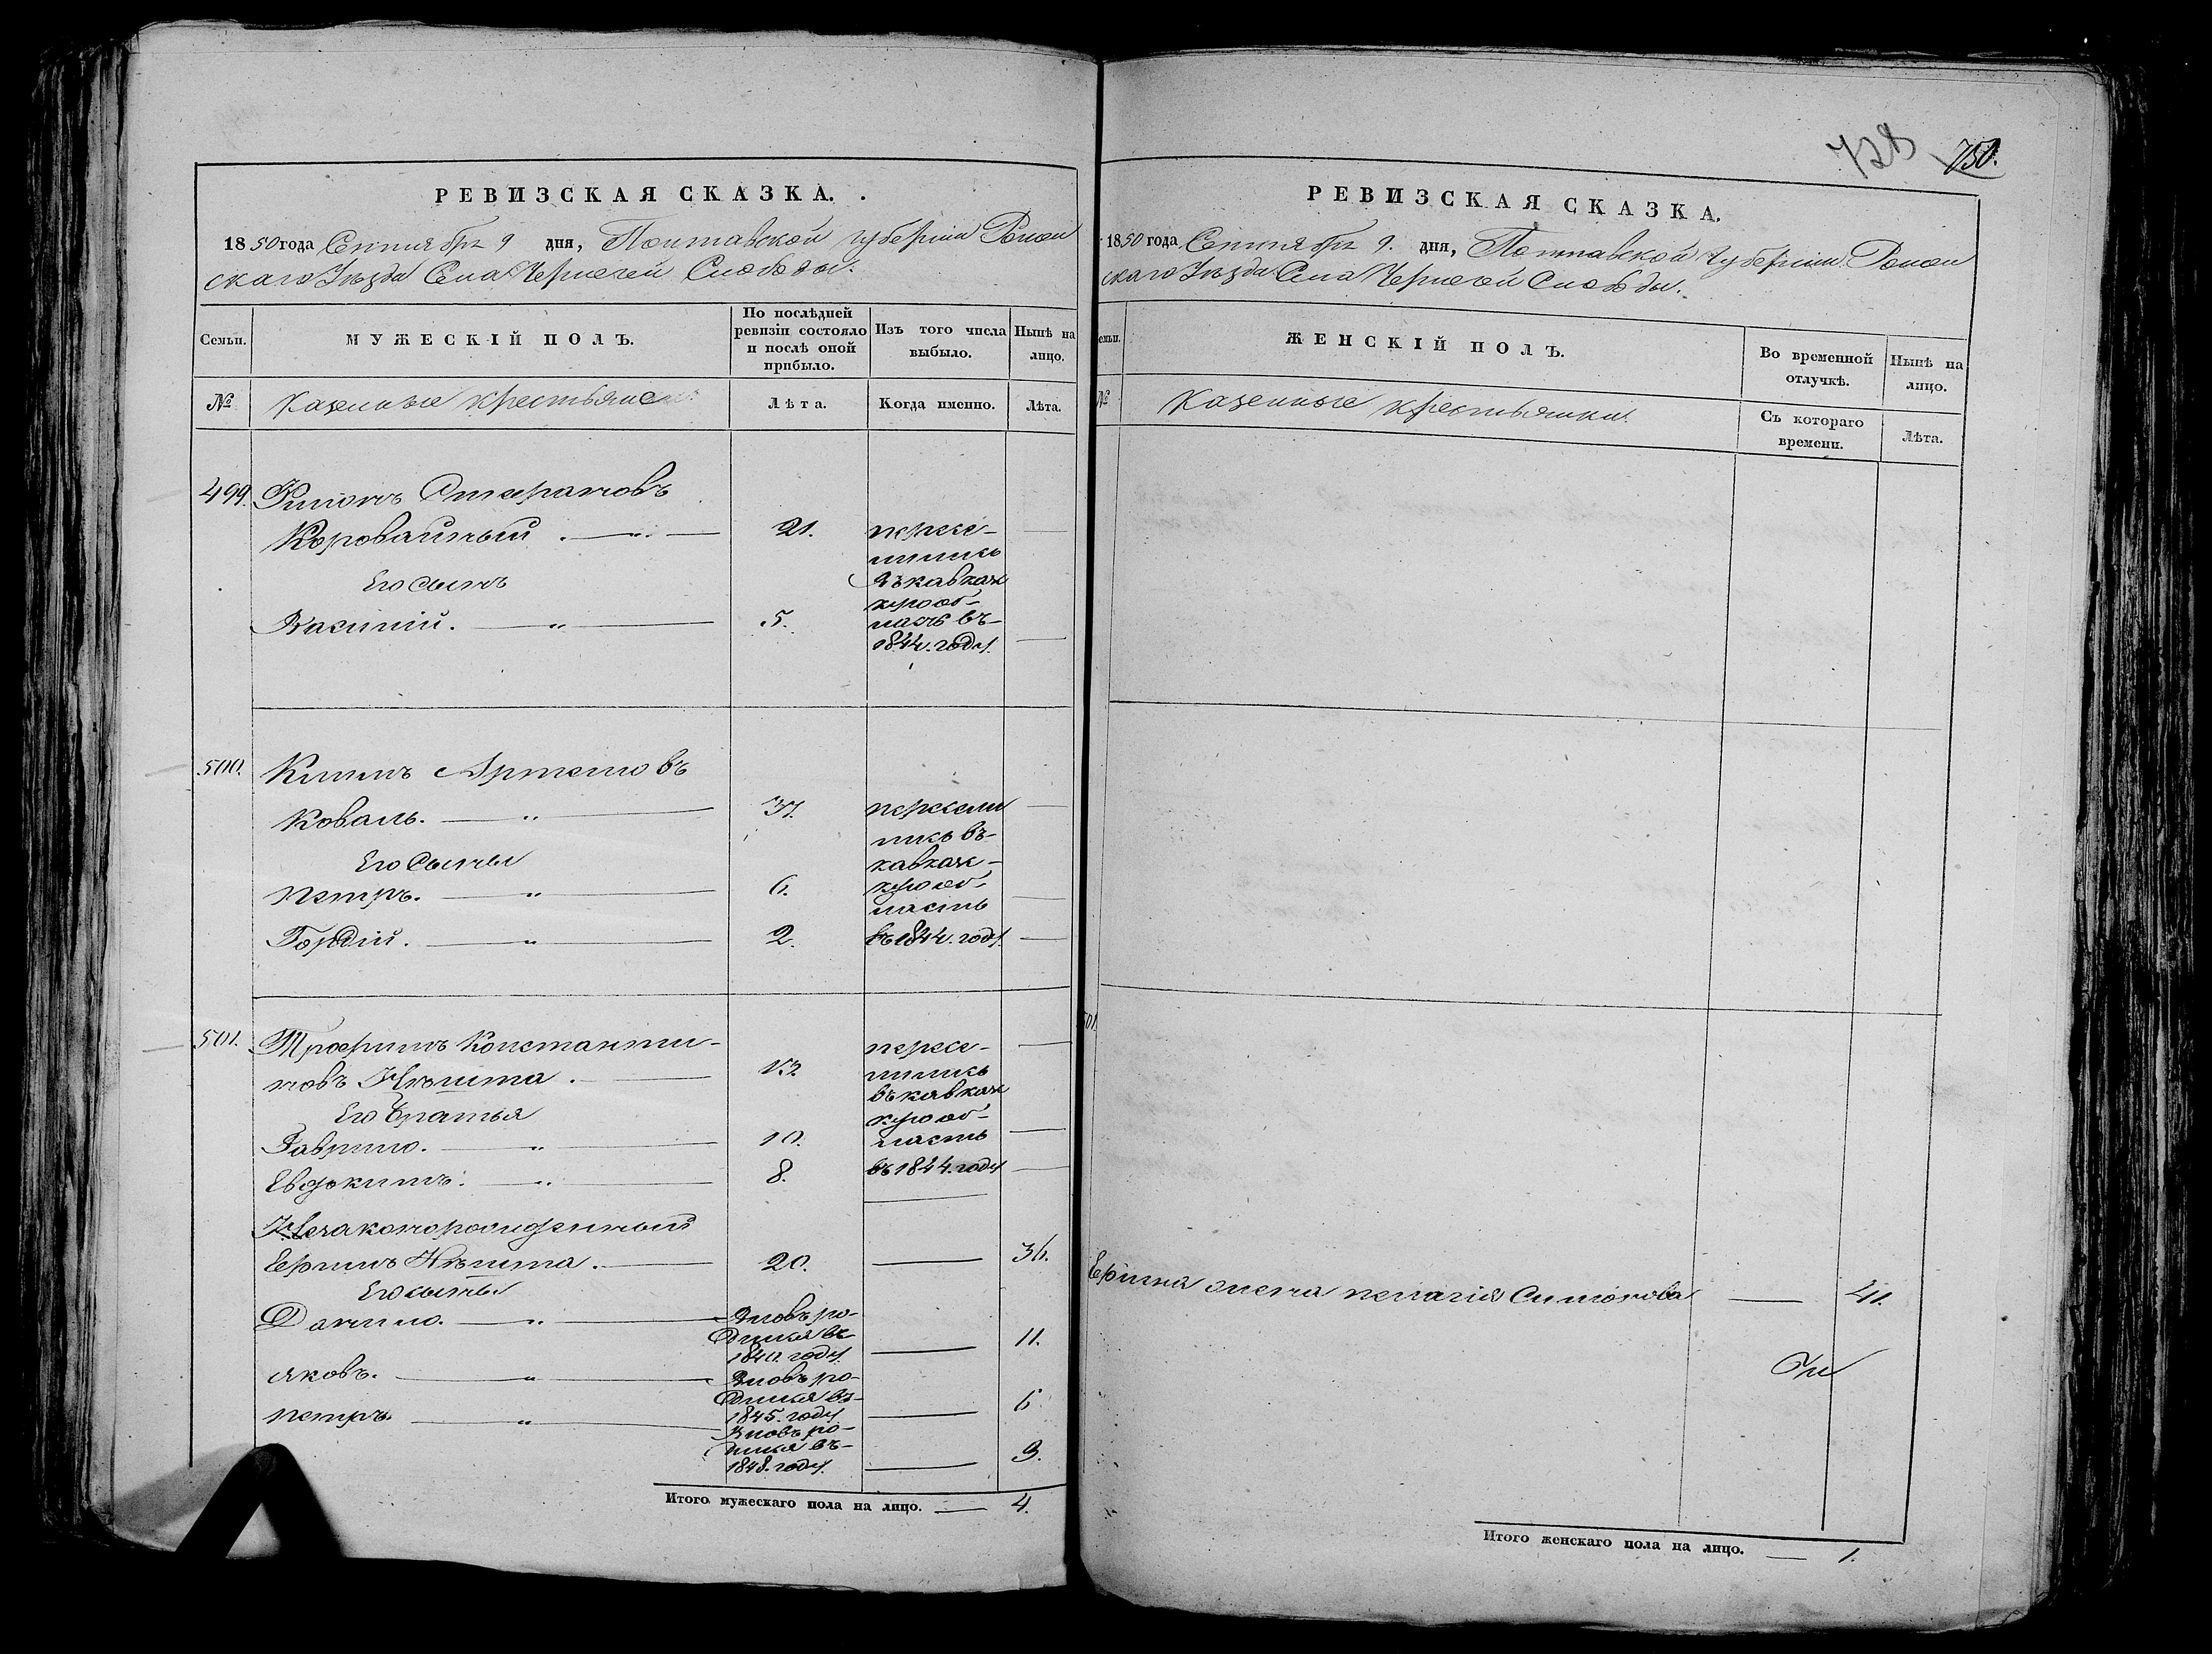 РЕВИЗСКАЯ СКАЗКА.
1850 года Сентября 9 дня, Полтавской губерніи Ромен
скаго Уѣзда Села Чернечей Слободы.
Семьи. МУЖЕСКІЙ ПОЛЪ. По послѣдней ревизіи состояло и послѣ оной прибыло. Изъ того числа выбыло. Нынѣ на лицо.
№ Казенные крестьяне Лѣта. Когда именно. Лѣта.
499. Стефановъ
Коровайный 21. пересе-
лились
Его Сынъ въ кавказ
скую об-
Василий. 5. ласть въ
1844. году.
500. Климъ Артемовъ
Коваль. 37. пересели
лись въ
Его Сыны кавказ-
Петръ. 6. скую об-
ласть
Гордій. 2. въ 1844. году
501. Трофимъ Константи- пересе-
новъ 13 лились
въ кавказ
Его братья скую об-
Гаврило. 10. ласть
Евдокимъ. 8. въ 1844. году
Незаконорожденный
20. 36.
Его сыны
Данило. Вновь ро-
дился въ
1840. году. 11.
Яковъ. Вновь ро-
дился въ
1845. году 6
Петръ. Вновь ро-
дился въ
1848. году. 3.
Итого мужескаго пола на лицо. 4.
728 750.
РЕВИЗСКАЯ СКАЗКА.
1850 года Сентября 9. дня, Полтавской Губерніи Ромен
скаго Уѣзда Села Чернечей Слободы.
Семьи. ЖЕНСКІЙ ПОЛЪ. Во временной отлучкѣ. Нынѣ на лицо.
№ Казенные крестьянки. Съ котораго времени. Лѣта.
501.
жена Пелагія Симонова 41.
Итого женскаго пола на лицо. 1.